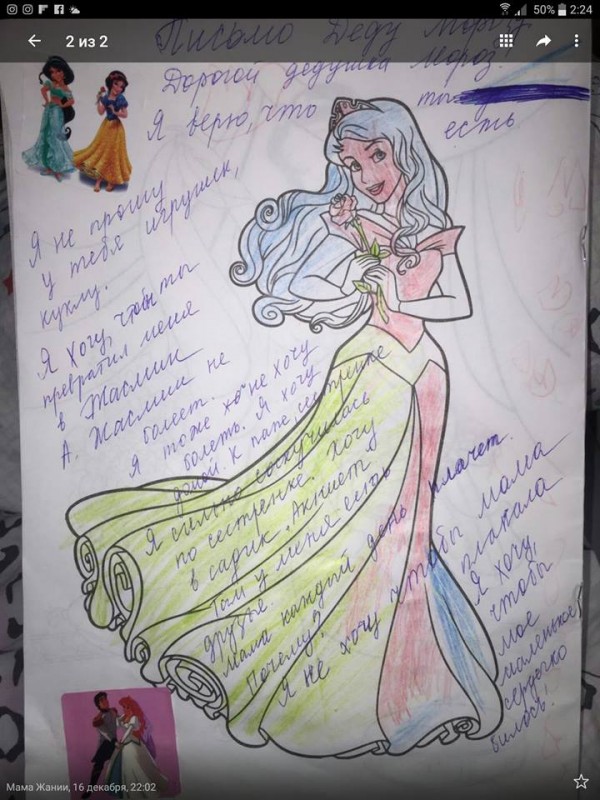 50% 2:24
2 из 2
Письмо Деду Морозу
Дорогой дедушка Мороз!
Я верю, что ты
есть
Я не прошу
у тебя игрушек,
куклу.
Я хочу, чтобы ты
превратил меня
в Жасмин
А. Жасмин не
болеет.
Я тоже не хочу
болеть. Я хочу
домой. К папе, сестренке
Я сильно соскучилась
по сестренке. Хочу
в садик.
Там у меня есть
друзья.
Мама каждый день плачет.
Почему?
Я не хочу чтобы мама
плакала
Я хочу,
чтобы
мое
маленькое
сердечко
билось!
Мама Жании, 16 декабря, 22:02